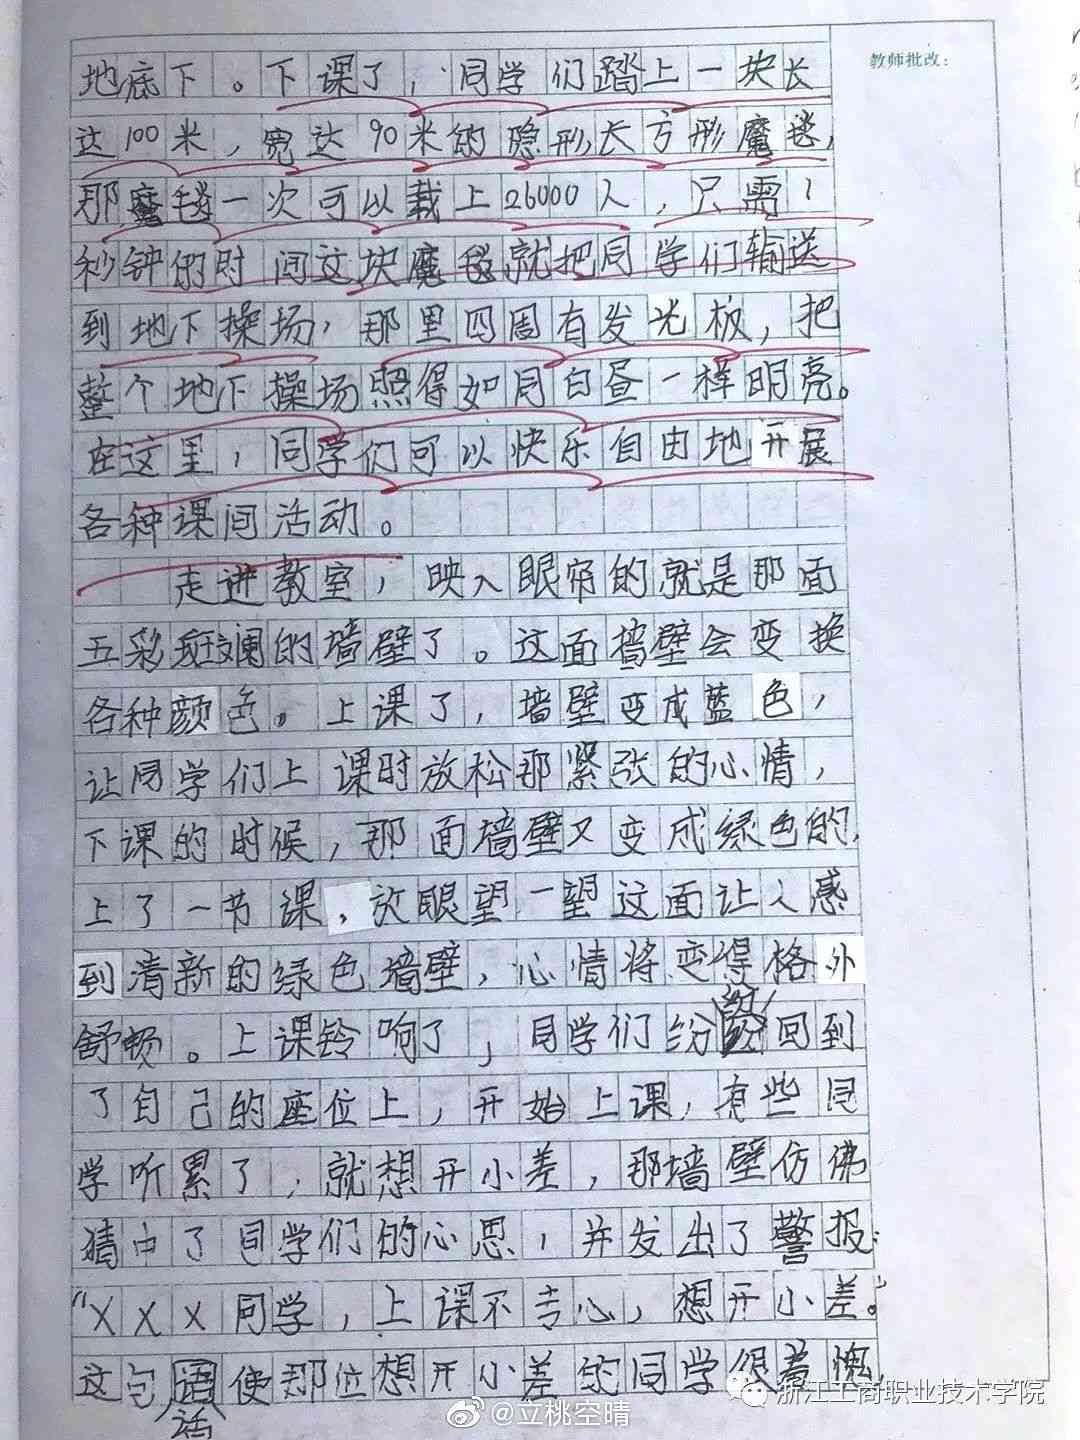 教师批改：
地底下。下课了，同学们踏上一块长
达100米，宽达90米的隐形长方形魔毯，
那魔毯一次可以载上26000人，只需1
秒钟的时间这块魔毯就把同学们输送
到地下操场，那里四周有发光板，把
整个地下操场照得如同白昼一样明亮。
在这里，同学们可以快乐自由地开展
各种课间活动。
走进教室，映入眼帘的就是那面
五彩斑斓的墙壁了。这面墙壁会变换
各种颜色。上课了，墙壁变成蓝色，
让同学们上课时放松那紧张的心情，
下课的时候，那面墙壁又变成绿色的，
上了一节课，放眼望一望这面让人感
到清新的绿色墙壁，心情将变得格外
舒畅。上课铃响了，同学们纷纷回到
了自己的座位上，开始上课，有些同
学听累了，就想开小差，那墙壁仿佛
猜中了同学们的心思，并发出了警报：
“XXX同学，上课不专心，想开小差。”
这句话使那位想开小差的同学很羞愧
@立桃空晴
浙江工商职业技术学院